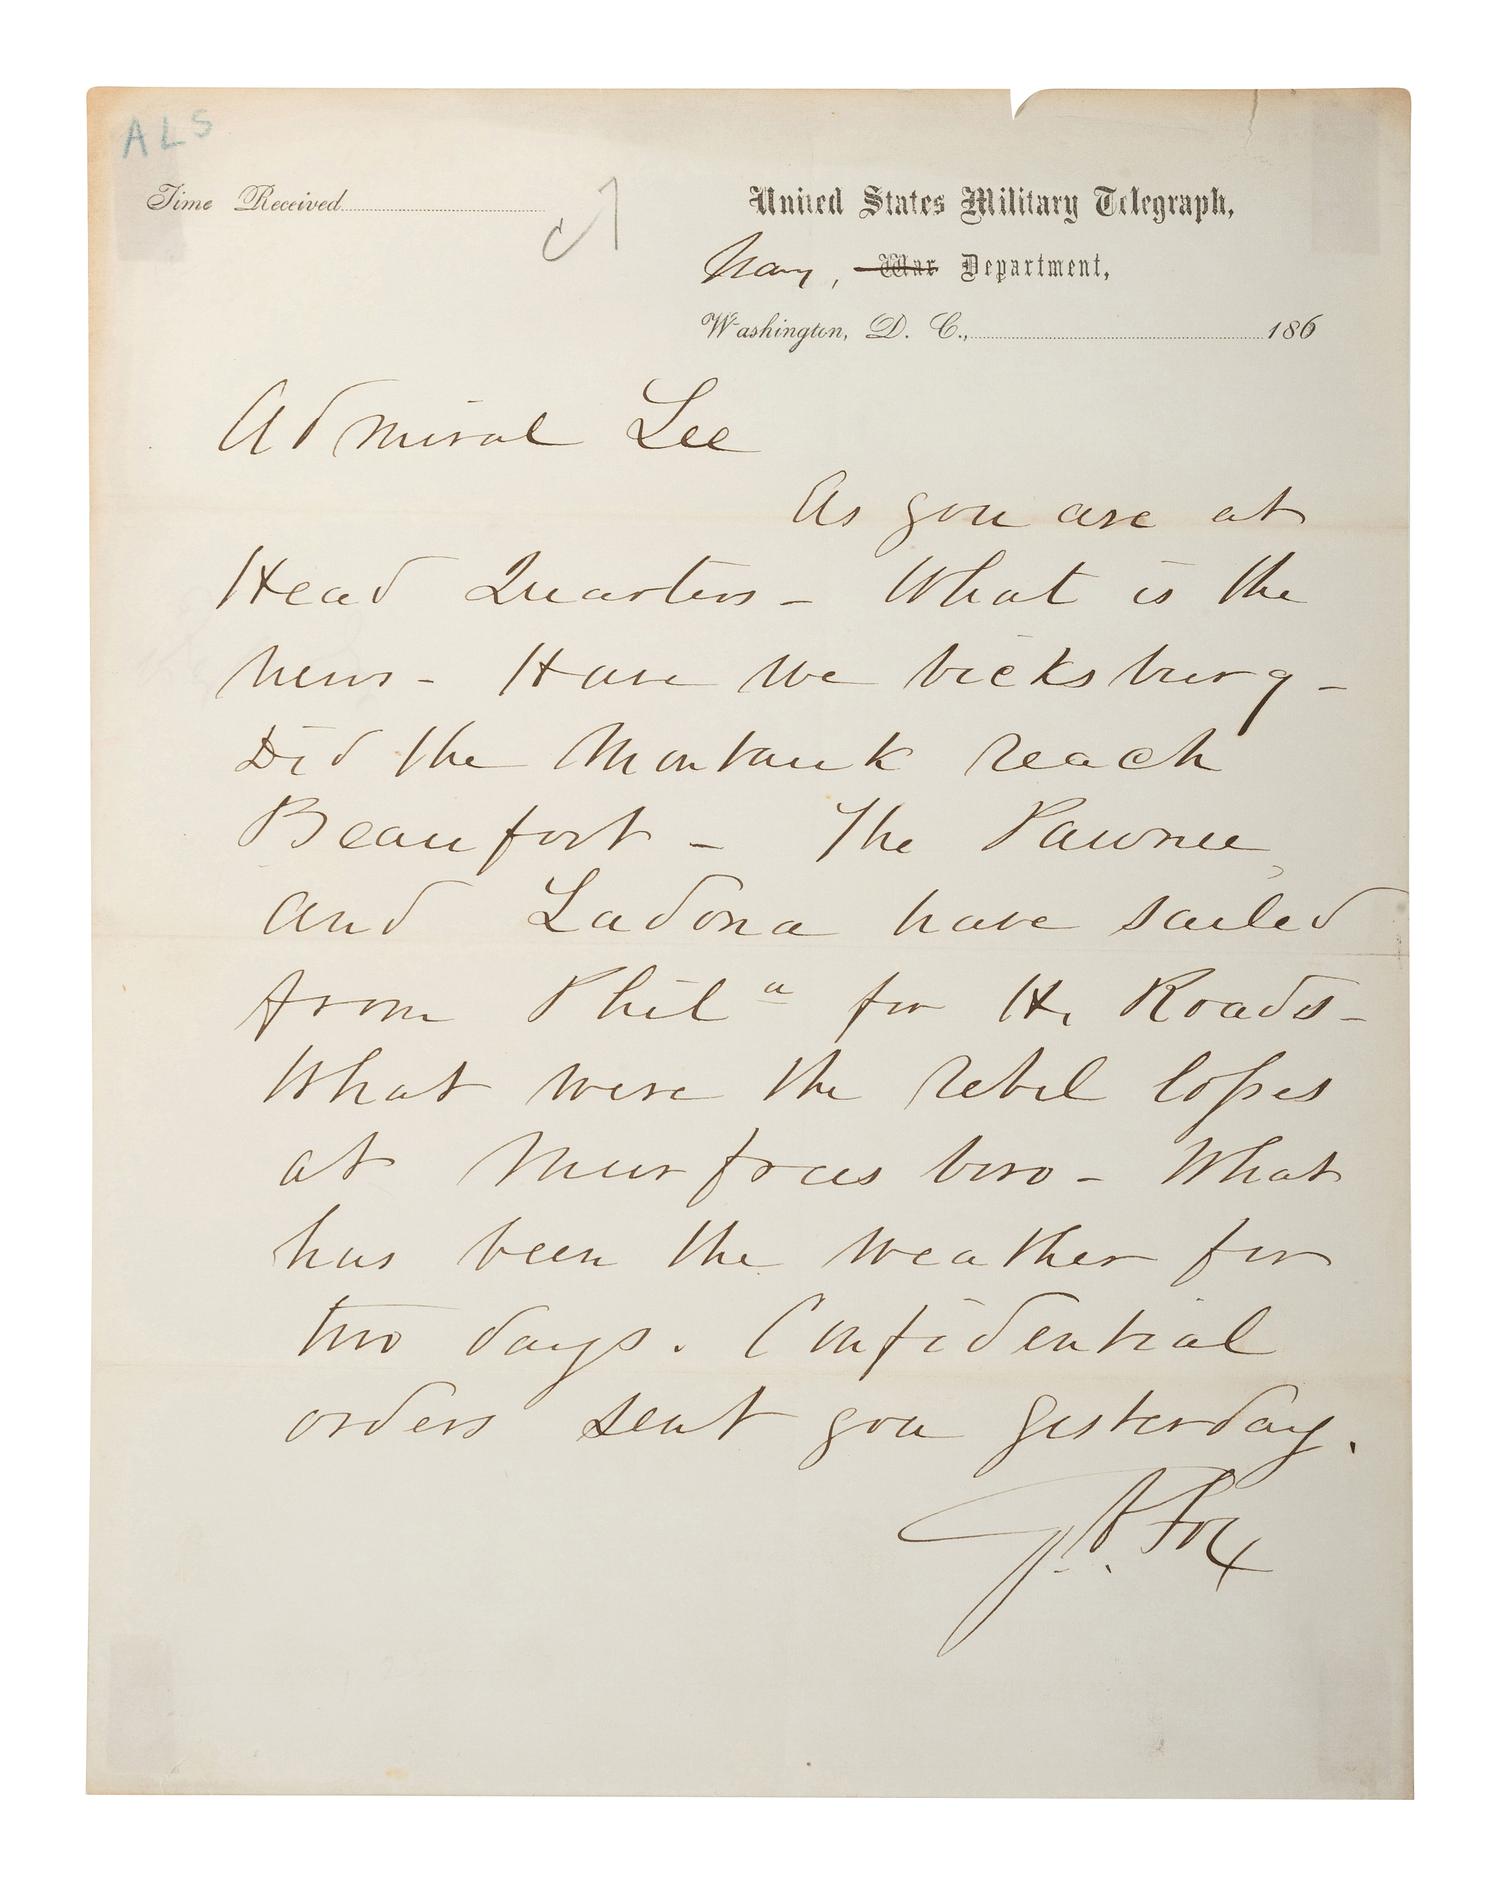 ALS
Time Received
United States Military Telegraph,
Navy, War Department,
Washington, D. C., 186
Admiral Lee
As you are at
Head Quarters - What is the
news - Have we vicksburg -
Did the Montauk reach
Beaufort - The Pawnee
and Ladona have sailed
from Phila for H. Roads -
What were the rebel losses
at Murfrees boro - What
has been the weather for
two days. Confidential
orders sent you yesterday.
G. V. Fox